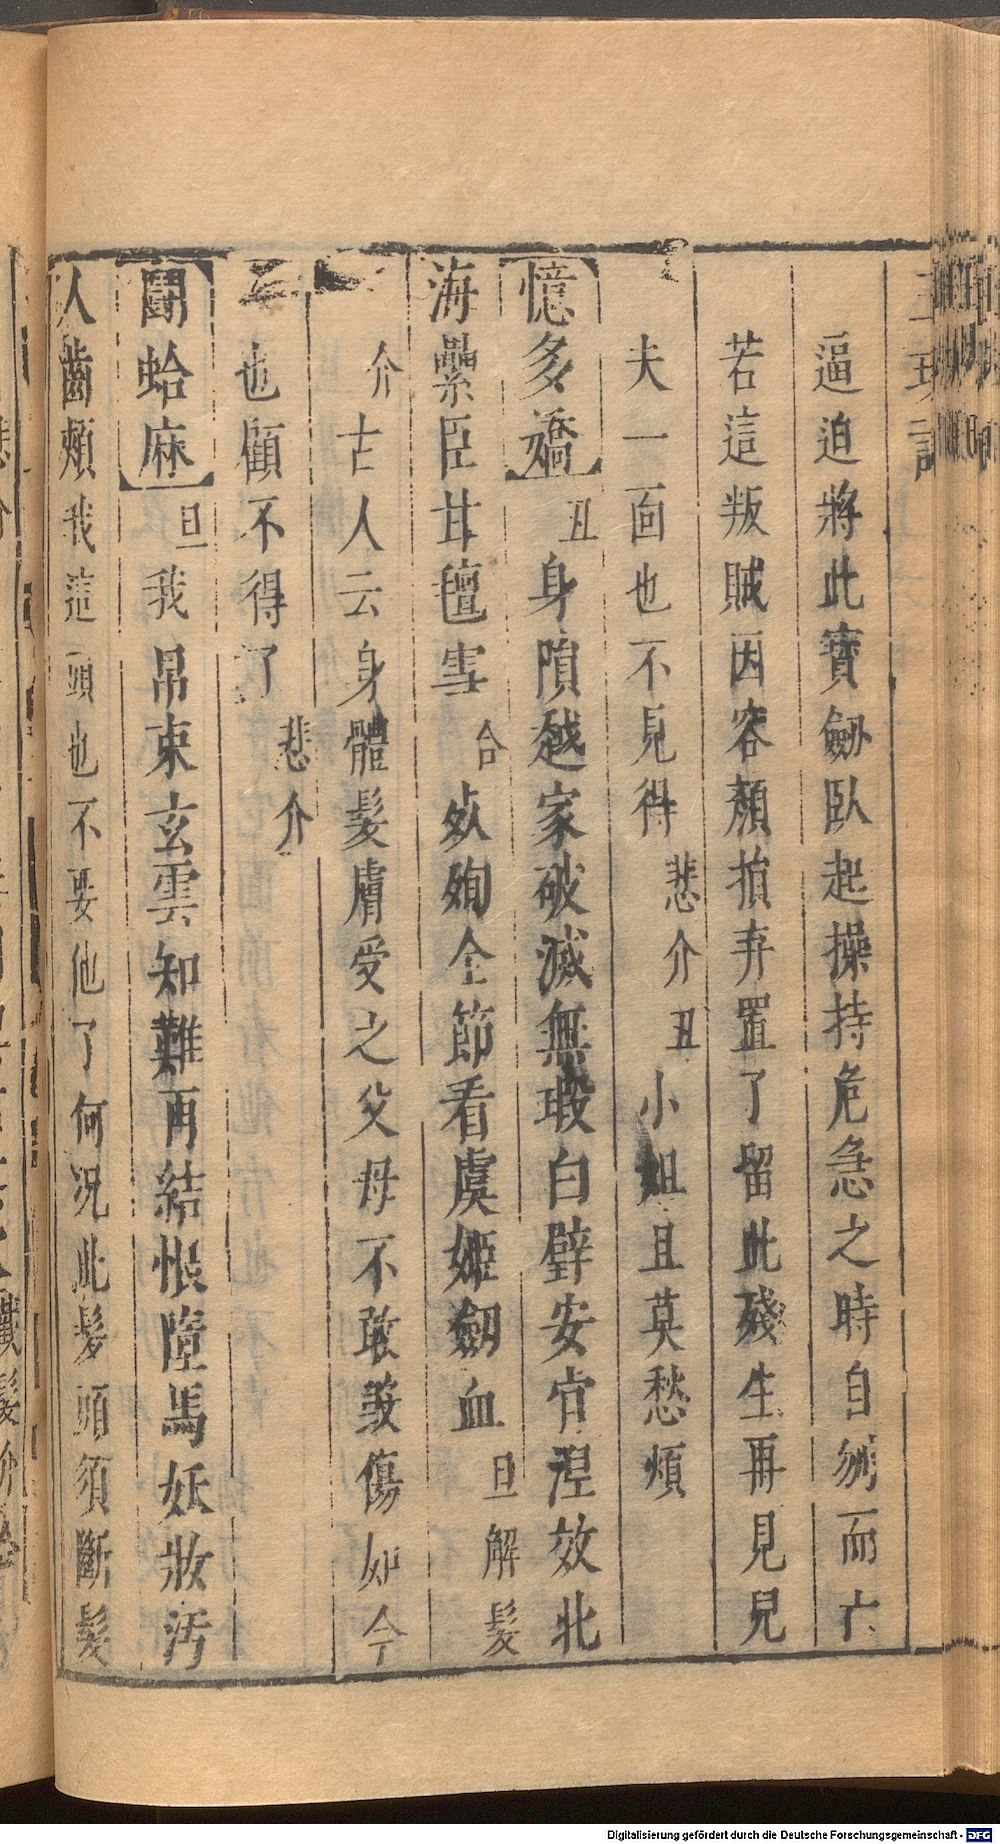 逼迫將此寶劒臥起操持危急之時自刎而亡
若這叛賊因容顏損弃置了留此殘生再見兒
夫一面也不見得悲介丑小姐且莫愁煩
憶多嬌丑身隕越家破滅無瑕白璧安官湼效北
海纍臣甘氊雪合㱠殉全節看虞姬劒血旦解髮
介古人云身體髮膚受之父母不敢毀傷如今
也顧不得了悲介
鬪蛤麻旦我帛束玄雲知難再結恨墮馬妖妝汚
人齒頰我這頭也不要他了何况此髮頭須斷髮
Digitalisierung gefördert durch die Deutsche Forschungsgemeinschaft - DFG